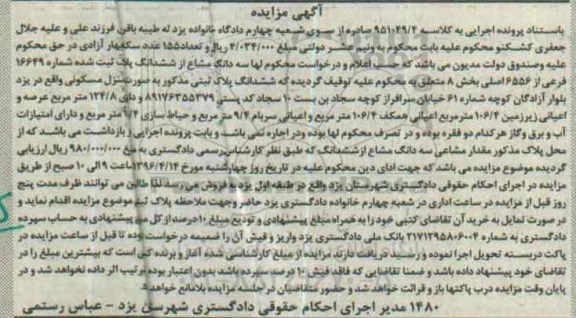 آگهی مزایده
باستناد پرونده اجرایی به کلاسه ۹۵۱۰۴۹/۴ صادره از سوی شعبه چهارم دادگاه خانواده یزد له طیبه باقری فرزند علی و علیه جلال
جعفری کشکنو محکوم علیه بابت محکوم به ونیم عشر دولتی مبلغ ۴/۰۳۴/۰۰۰ ریال و تعداد۱۵۵ عدد سکه بهار آزادی در حق محکوم
علیه وصندوق دولت مدیون می باشد که حسب اعلام و درخواست محکوم لها سه دانگ مشاع از ششدانگ پلاک ثبت شده شماره ۱۶۶۴۹
فرعی از ۶۵۵۶ اصلی بخش ۸ متعلق به محکوم علیه توقیف گردیده که ششدانگ پلاک ثبتی مذکور به صورت منزل مسکونی واقع در یزد
بلوار آزادگان کوچه شماره ۶۱ خیابان سرافراز کوچه سجاد بن بست ۱۰ سجاد کد پستی ۸۹۱۷۶۳۵۵۳۷۹ و دای ۱۲۴/۸ متر مربع عرصه و
اعیانی زیرزمین ۱۰۶/۴ مترمربع اعیانی همکف ۱۰۶/۴ متر مربع و اعیانی سربام ۹/۴ متر مربع و حیاط سازی ۷/۴ متر مربع و دارای امتیازات
آب و برق وگاز هرکدام دو فقره بوده و در تصرف محکوم لها بوده ودر اجاره نمی باشد و بابت پرونده اجرایی بازداشت می باشد که از
محل پلاک مذکور مقدار مشاعی سه دانگ مشاع ازششدانگ که طبق نظر کارشناس رسمی دادگستری به مبلغ ۹۸۰/۰۰۰/۰۰۰ ریال ارزیابی
گردیده موضوع مزایده می باشد که جهت ادای دین محکوم علیه در تاریخ روز چهارشنبه مورخ ۱۳۹۶/۴/۱۴ ساعت ۹ الی ۱۰ صبح از طریق
مزایده در اجرای احکام حقوقی دادگستری شهرستان یزد واقع در طبقه اول یزد به فروش می رسد لذا طالبین می توانند ظرف مدت پنج
روز قبل از مزایده در ساعت اداری در شعبه چهارم خانواده دادگستری یزد حاضر وجهت ملاحظه پلاک ثبتی موضوع مزایده اقدام نماید و
در صورت تمایل به خرید آن تقاضای کتبی خود را به همراه مبلغ پیشنهادی و تودیع مبلغ ۱۰ درصد از کل مبلغ پیشنهادی به حساب سپرده
دادگستری به شماره ۲۱۷۱۲۹۵۸۰۶۰۰۴ بانک ملی دادگستری یزد واریز و فیش آن را ضمیمه درخواست بوده تا قبل از ساعت مزایده در
پاکت دربسته تحویل اجرا نموده و رسید دریافت دارند مزایده از مبلغ کارشناسی شده آغاز و برنده کسی است که بیشترین مبلغ را در
تقاضای خود پیشنهاد داده باشد و ضمنا تقاضایی که فاقد فیش ۱۰ درصد سپرده باشد بدون اعتبار بوده ترتیب اثر داده نخواهد شد و در
پایان وقت مزایده درب پاکتها باز و قرائت خواهد شد و حضور متقاضیان در جلسه مزایده بلامانع خواهد بود
۱۴۸۰ مدیر اجرای احکام حقوقی دادگستری شهرستان یزد - عباس رستمی